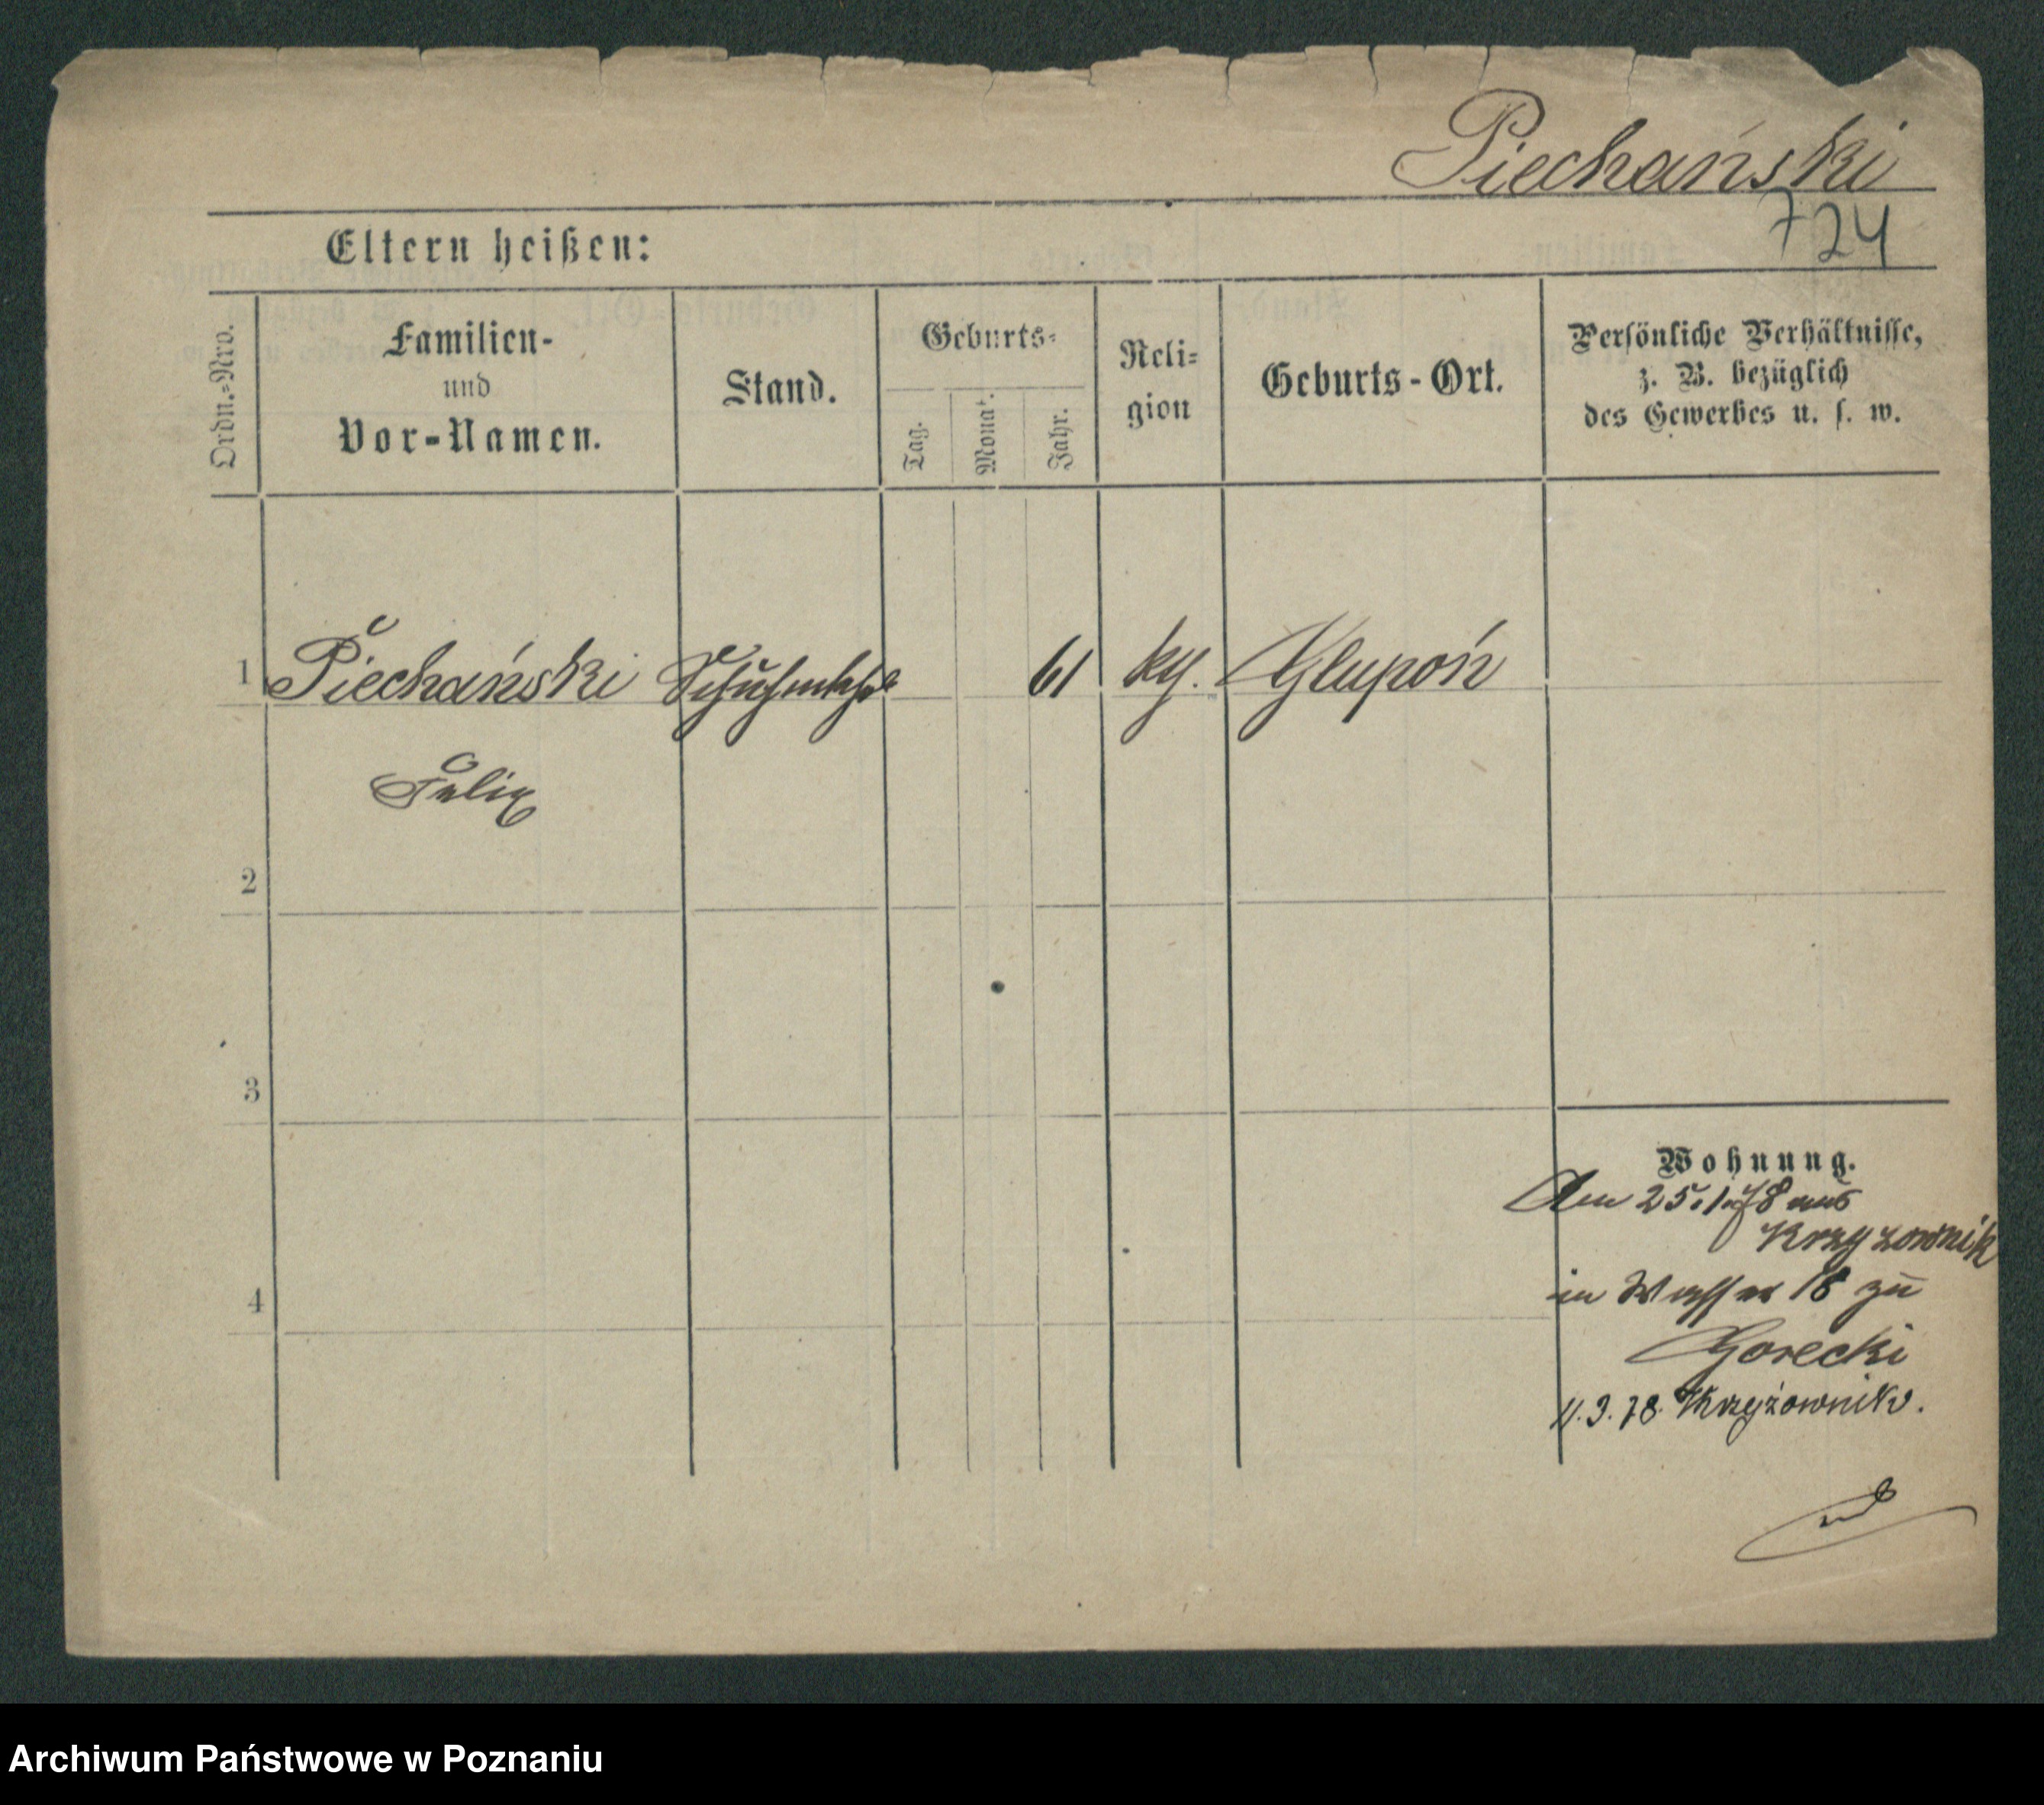 Piechański
724
Eltern heißen:
Ordn.-Nro.
Familien-
und
Vor-Namen.
Stand.
Geburts-
Tag.
Monat.
Jahr.
Reli-
gion
Geburts-Ort.
Persönliche Verhältnisse,
z. B. bezüglich
des Gewerbes u. s. w.
1 Piechański 61 Glupoń
Felix
2
3
4
Wohnung.
Am 25.1.78 aus
Krzyzownik
in Wasser 18 zu
Gorecki
11.3.78. Krzyżownik.
Archiwum Państwowe w Poznaniu